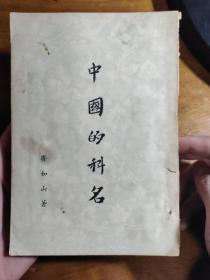 中國的科名
齊如山著